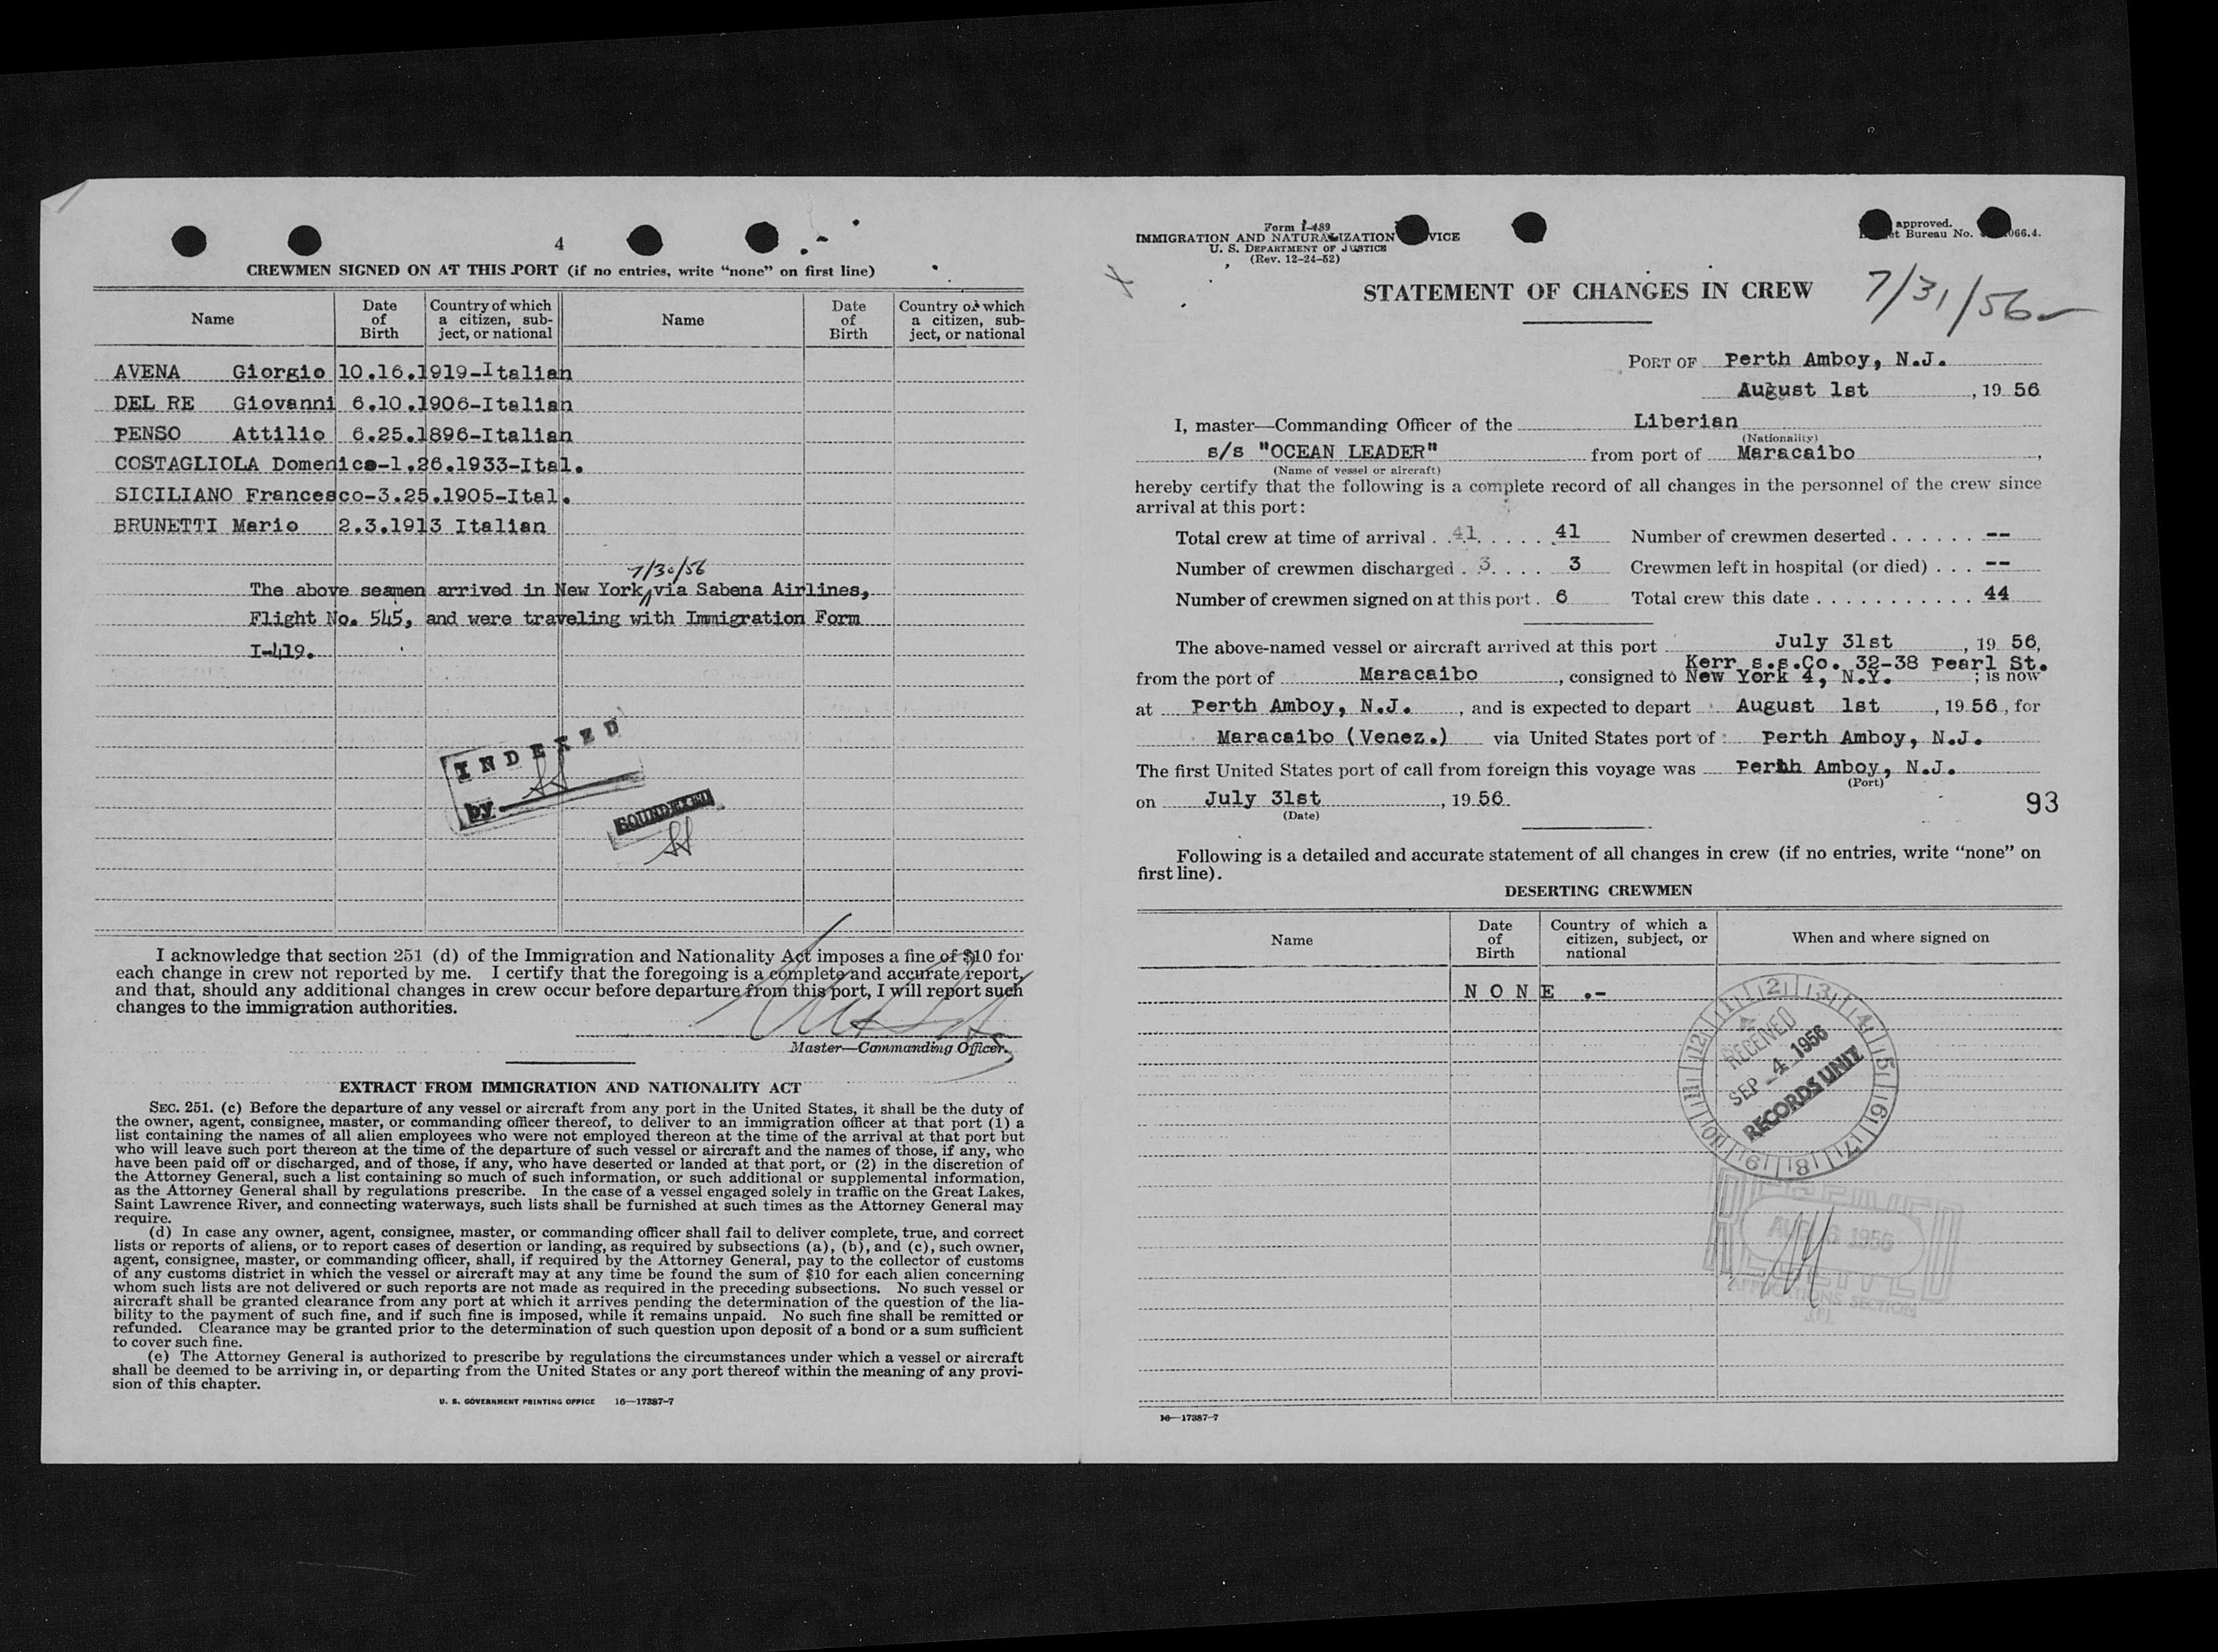 4
CREWMEN SIGNED ON AT THIS PORT (if no entries, write "none" on first line)
Name Date of Birth Country of which a citizen, subject, or national Name Date of Birth Country of which a citizen, subject, or national
AVENA Giorgio 10.16.1919-Italian
DEL RE Giovanni 6.10.1906-Italian
PENSO Attilio 6.25.1896-Italian
COSTAGLIOLA Domenico-1.26.1933-Ital.
SICILIANO Francesco-3.25.1905-Ital.
BRUNETTI Mario 2.3.1913 Italian
7/30/56
The above seamen arrived in New York, via Sabena Airlines,
Flight No. 545, and were traveling with Immigration Form
I-419.
INDEXED
by
SOUNDEXED
I acknowledge that section 251 (d) of the Immigration and Nationality Act imposes a fine of $10 for
each change in crew not reported by me. I certify that the foregoing is a complete and accurate report,
and that, should any additional changes in crew occur before departure from this port, I will report such
changes to the immigration authorities.
Master—Commanding Officer.
EXTRACT FROM IMMIGRATION AND NATIONALITY ACT
SEC. 251. (c) Before the departure of any vessel or aircraft from any port in the United States, it shall be the duty of
the owner, agent, consignee, master, or commanding officer thereof, to deliver to an immigration officer at that port (1) a
list containing the names of all alien employees who were not employed thereon at the time of the arrival at that port but
who will leave such port thereon at the time of the departure of such vessel or aircraft and the names of those, if any, who
have been paid off or discharged, and of those, if any, who have deserted or landed at that port, or (2) in the discretion of
the Attorney General, such a list containing so much of such information, or such additional or supplemental information,
as the Attorney General shall by regulations prescribe. In the case of a vessel engaged solely in traffic on the Great Lakes,
Saint Lawrence River, and connecting waterways, such lists shall be furnished at such times as the Attorney General may
require.
(d) In case any owner, agent, consignee, master, or commanding officer shall fail to deliver complete, true, and correct
lists or reports of aliens, or to report cases of desertion or landing, as required by subsections (a), (b), and (c), such owner,
agent, consignee, master, or commanding officer, shall, if required by the Attorney General, pay to the collector of customs
of any customs district in which the vessel or aircraft may at any time be found the sum of $10 for each alien concerning
whom such lists are not delivered or such reports are not made as required in the preceding subsections. No such vessel or
aircraft shall be granted clearance from any port at which it arrives pending the determination of the question of the lia-
bility to the payment of such fine, and if such fine is imposed, while it remains unpaid. No such fine shall be remitted or
refunded. Clearance may be granted prior to the determination of such question upon deposit of a bond or a sum sufficient
to cover such fine.
(e) The Attorney General is authorized to prescribe by regulations the circumstances under which a vessel or aircraft
shall be deemed to be arriving in, or departing from the United States or any port thereof within the meaning of any provi-
sion of this chapter.
U. S. GOVERNMENT PRINTING OFFICE 16—17387-7
Form I-489
IMMIGRATION AND NATURALIZATION VICE
U. S. DEPARTMENT OF JUSTICE
(Rev. 12-24-52)
approved.
et Bureau No. 066.4.
7/31/56
STATEMENT OF CHANGES IN CREW
PORT OF Perth Amboy, N.J.
August 1st, 19 56
I, master—Commanding Officer of the Liberian
(Nationality)
s/s "OCEAN LEADER" from port of Maracaibo,
(Name of vessel or aircraft)
hereby certify that the following is a complete record of all changes in the personnel of the crew since
arrival at this port:
Total crew at time of arrival . 41 . . . . . 41 Number of crewmen deserted . . . . . . --
Number of crewmen discharged . 3 . . . . 3 Crewmen left in hospital (or died) . . . --
Number of crewmen signed on at this port . 6 Total crew this date . . . . . . . . . . . 44
The above-named vessel or aircraft arrived at this port July 31st, 19 56,
Kerr s.s.Co. 32-38 Pearl St.
from the port of Maracaibo, consigned to New York 4, N.Y. ; is now
at Perth Amboy, N.J., and is expected to depart August 1st, 19 56, for
Maracaibo (Venez.) via United States port of Perth Amboy, N.J.
The first United States port of call from foreign this voyage was Perth Amboy, N.J.
(Port)
on July 31st, 19 56.
(Date)
93
Following is a detailed and accurate statement of all changes in crew (if no entries, write "none" on
first line).
DESERTING CREWMEN
Name Date of Birth Country of which a citizen, subject, or national When and where signed on
N O N E .-
1 2 3 4 5 6 7 8 9 10 11 12
RECEIVED
SEP 4 1956
RECORDS UNIT
AUG 1956
APPLICATIONS SECTION
16—17387-7